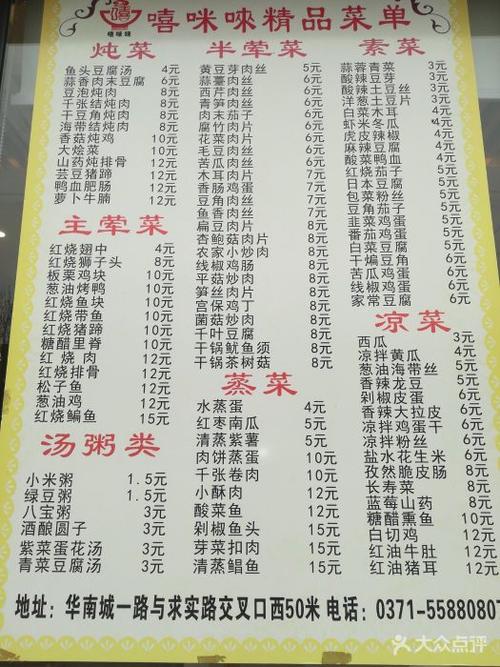 嘻咪唻
嘻咪唻精品菜单
炖菜
鱼头豆腐汤 4元
蒜香肉末豆腐 6元
豆泡炖肉 6元
千张结炖肉 8元
干豆角炖肉 8元
海带结炖肉 10元
香菇炖鸡 10元
大烩菜 10元
山药炖排骨 12元
芸豆猪蹄 12元
鸭血肥肠 12元
萝卜牛腩 12元
主荤菜
红烧翅中 4元
红烧狮子头 8元
板栗鸡块 10元
葱油烤鸭 10元
红烧鱼块 10元
红烧带鱼 10元
红烧猪蹄 10元
糖醋里脊 10元
红烧肉 12元
红烧排骨 12元
松子鱼 12元
葱油鸡 12元
红烧鳊鱼 15元
汤粥类
小米粥 1.5元
绿豆粥 1.5元
八宝粥 3元
酒酿圆子 3元
紫菜蛋花汤 3元
青菜豆腐汤 3元
半荤菜
黄豆芽肉丝 5元
蒜薹肉丝 6元
西芹肉丝 6元
青笋肉丝 6元
肉末茄子 6元
腐竹肉片 6元
花菜肉片 6元
毛豆肉丝 6元
苦瓜肉丝 6元
木耳肉片 7元
香肠鸡蛋 7元
豆角肉丝 7元
鱼香肉丝 8元
扁豆肉片 8元
杏鲍菇肉片 8元
农家小炒肉 8元
线椒鸡肠 8元
平菇炒肉 8元
笋丝肉片 8元
宫保鸡丁 8元
菌菇炒肉 8元
千叶豆腐 8元
干锅鱿鱼须 8元
干锅茶树菇 8元
蒸菜
水蒸蛋 4元
红枣南瓜 5元
清蒸紫薯 5元
肉饼蒸蛋 10元
千张卷肉 10元
小酥肉 12元
酸菜鱼 12元
剁椒鱼头 15元
芽菜扣肉 10元
清蒸鲳鱼 10元
素菜
蒜蓉青菜 3元
酸辣豆芽 3元
凉菜
西瓜 3元
凉拌黄瓜 5元
葱油海带丝 6元
香辣龙豆 6元
剁椒皮蛋 6元
香辣大拉皮 6元
凉拌鸡蛋干 6元
凉拌粉丝 6元
盐水花生米 6元
孜然脆皮肠 8元
长寿菜 8元
蓝莓山药 8元
糖醋熏鱼 10元
白切鸡 12元
红油牛肚 12元
红油猪耳 12元
地址：华南城一路与求实路交叉口西50米 电话：0371-5588080
大众点评